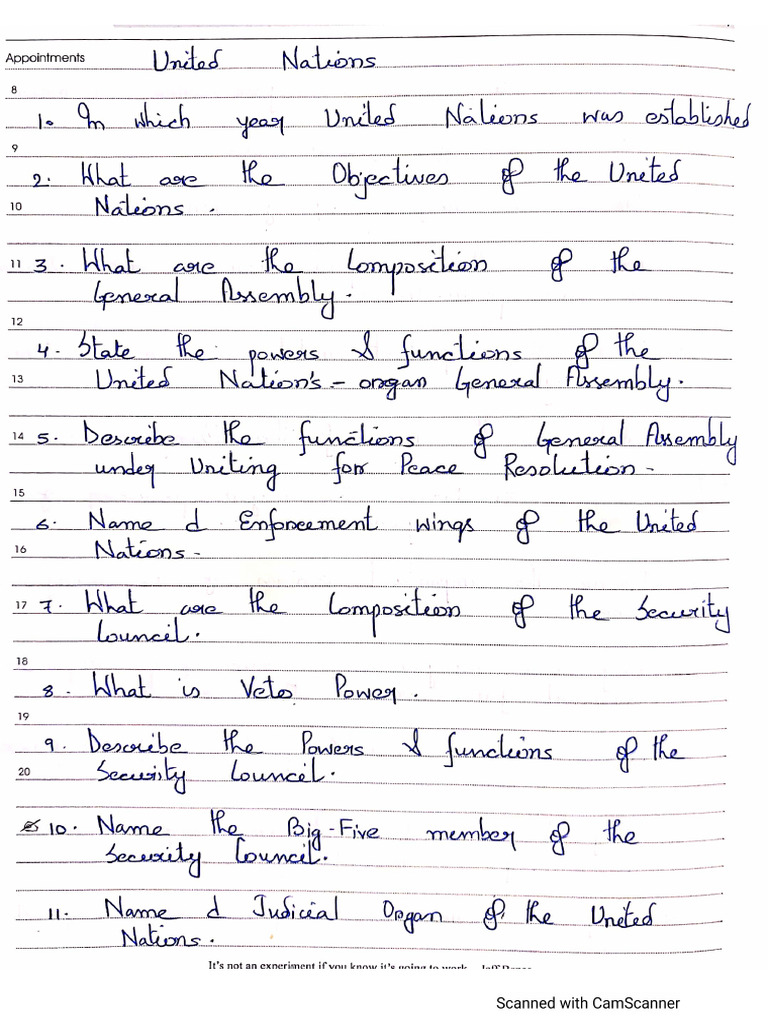 Appointments United Nations
8
1. In which year United Nations was established
9
2. What are the Objectives of the United
10 Nations.
11 3. What are the Composition of the
General Assembly.
12
4. State the powers & functions of the
13 United Nation's - organ General Assembly.
14 5. Describe the functions of General Assembly
under Uniting for Peace Resolution -
15
6. Name d Enforcement wings of the United
16 Nations -
17 7. What are the Composition of the Security
Council.
18
8. What is Veto Power.
19
9. Describe the Powers & functions of the
20 Security Council.
10. Name the Big-Five member of the
Security Council.
11. Name d Judicial Organ of the United
Nations.
It's not an experiment if you know it's going to work
Scanned with CamScanner